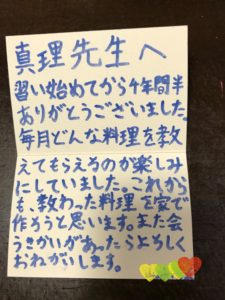 真理先生へ
習い始めてから4年間半
ありがとうございました。
毎月どんな料理を教
えてもらえるのが楽しみ
にしていました。これから
も、教わった料理を家で
作ろうと思います。また会
うきかいがあったらよろしく
おねがいします。